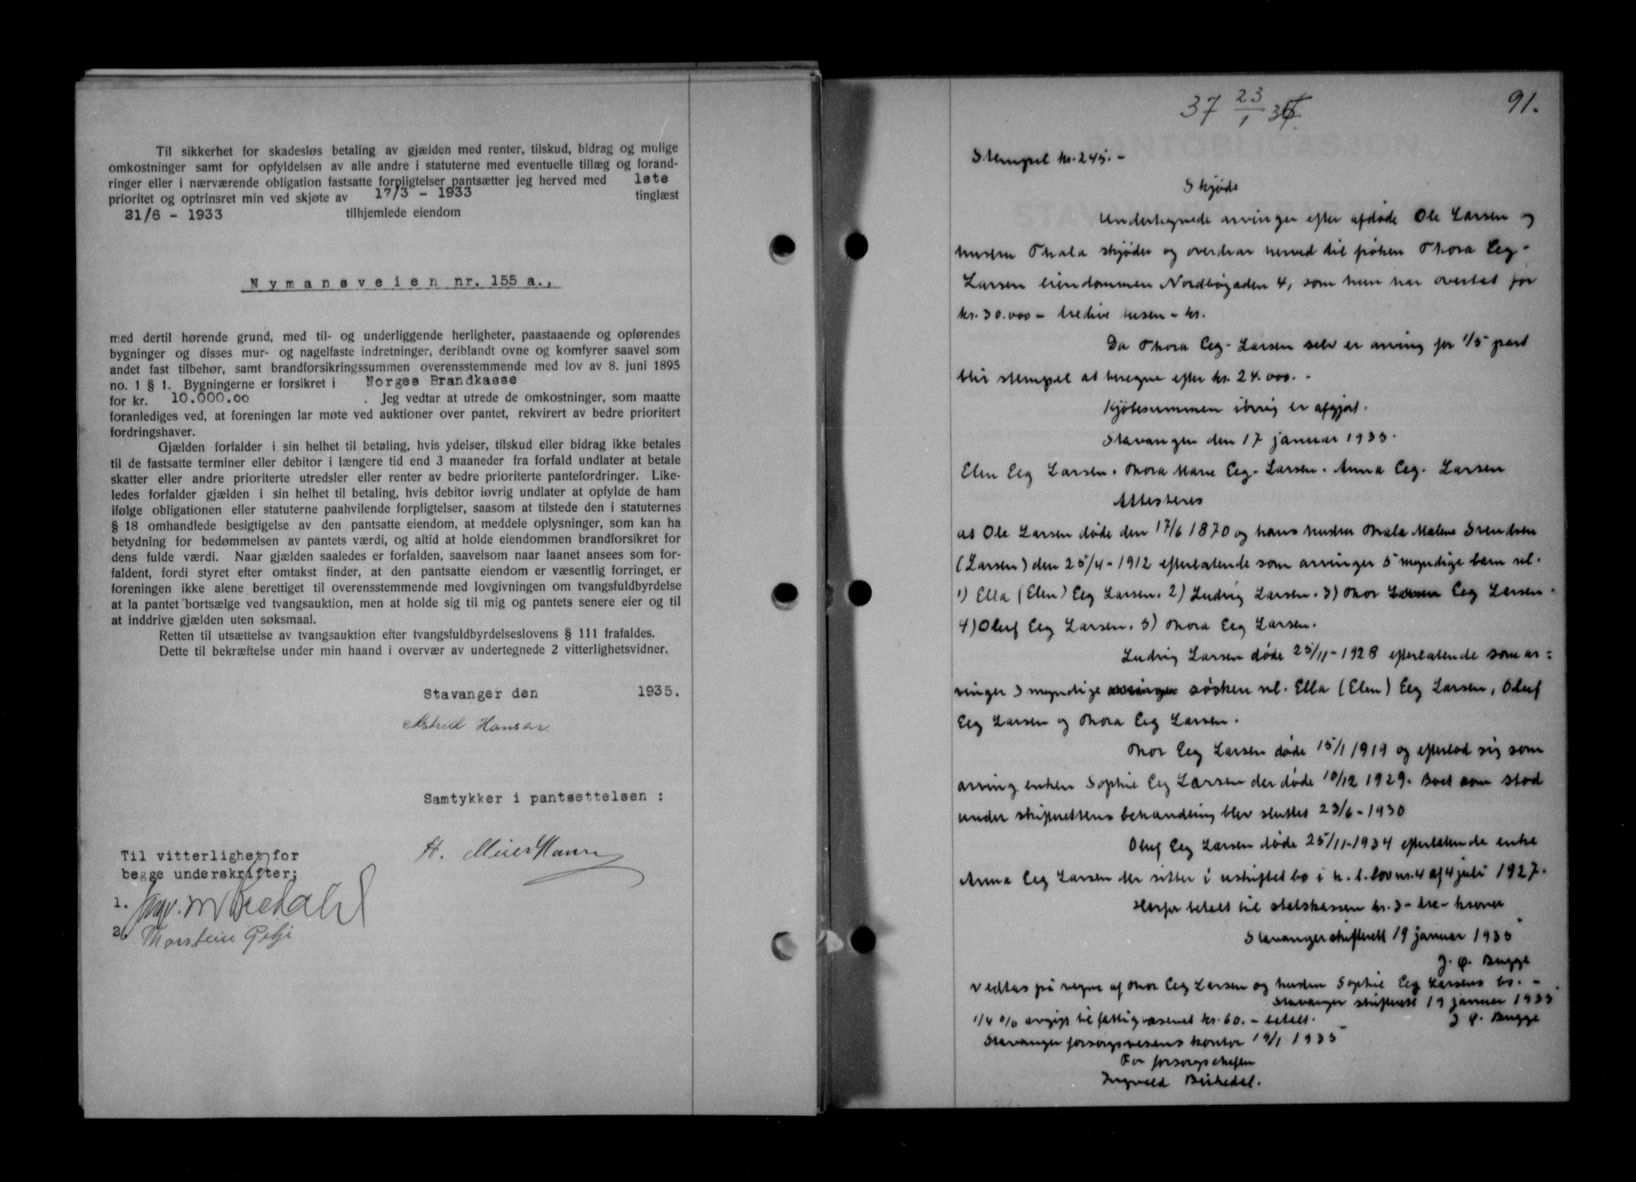 Til sikkerhet for skadesløs betaling av gjælden med renter, tilskud, bidrag og mulige
omkostninger samt for opfyldelsen av alle andre i statuterne med eventuelle tillæg og forand-
ringer eller i nærværende obligation fastsatte forpligtelser pantsætter jeg herved med 1ste
prioritet og optrinsret min ved skjøte av 17/3 - 1933 tinglæst
21/6 - 1933 tilhjemlede eiendom
Nymansveien nr. 155 a.,
med dertil hørende grund, med til- og underliggende herligheter, paastaaende og opførendes
bygninger og disses mur- og nagelfaste indretninger, deriblandt ovne og komfyrer saavel som
andet fast tilbehør, samt brandforsikringssummen overensstemmende med lov av 8. juni 1895
no. 1 § 1. Bygningerne er forsikret i Norges Brandkasse
for kr. 10.000.00 . Jeg vedtar at utrede de omkostninger, som maatte
foranlediges ved, at foreningen lar møte ved auktioner over pantet, rekvirert av bedre prioritert
fordringshaver.
Gjælden forfalder i sin helhet til betaling, hvis ydelser, tilskud eller bidrag ikke betales
til de fastsatte terminer eller debitor i længere tid end 3 maaneder fra forfald undlater at betale
skatter eller andre prioriterte utredsler eller renter av bedre prioriterte pantefordringer. Like-
ledes forfalder gjælden i sin helhet til betaling, hvis debitor iøvrig undlater at opfylde de ham
ifølge obligationen eller statuterne paahvilende forpligtelser, saasom at tilstede den i statuternes
§ 18 omhandlede besigtigelse av den pantsatte eiendom, at meddele oplysninger, som kan ha
betydning for bedømmelsen av pantets værdi, og altid at holde eiendommen brandforsikret for
dens fulde værdi. Naar gjælden saaledes er forfalden, saavelsom naar laanet ansees som for-
faldent, fordi styret efter omtakst finder, at den pantsatte eiendom er væsentlig forringet, er
foreningen ikke alene berettiget til overensstemmende med lovgivningen om tvangsfuldbyrdelse
at la pantet bortsælge ved tvangsauktion, men at holde sig til mig og pantets senere eier og til
at inddrive gjælden uten søksmaal.
Retten til utsættelse av tvangsauktion efter tvangsfuldbyrdelseslovens § 111 frafaldes.
Dette til bekræftelse under min haand i overvær av undertegnede 2 vitterlighetsvidner.
Stavanger den 1935.
Astrid Hansen
Samtykker i pantsettelsen :
Til vitterlighet for
begge underskrifter:
1.
2.
91.
37 23/1 35
Stempel kr. 245. -
Skjøde
Undertegnede arvinger efter afdøde Ole Larsen og
hustru Thala skjøder og overdrar herved til frøken Thora Eeg-
Larsen eiendommen Nordbøgaden 4, som hun har overtat for
kr. 30.000 - tredive tusen - kr.
Da Thora Eeg- Larsen selv er arving for 1/5 part
blir stempel at beregne efter kr. 24.000. -
Kjøbesummen ibrig er afgjort.
Stavanger den 17 januar 1935.
Elen Eeg Larsen. Thora Marie Eeg- Larsen. Anna Eeg- Larsen
Attesteres
at Ole Larsen døde den 17/6 1870 og hans hustru Thala Malene Svendsen
(Larsen) den 25/4 - 1912 efterlatende som arvinger 5 myndige barn nl.
1) Ella (Elen) Eeg Larsen. 2) Ludvig Larsen. 3) Thor Larsen Eeg Larsen.
4) Oluf Eeg Larsen. 5) Thora Eeg Larsen.
Ludvig Larsen døde 25/11 - 1928 efterlatende som ar:
vinger 3 myndige arvinger søsken nl. Ella (Elen) Eeg Larsen, Oluf
Eeg Larsen og Thora Eeg Larsen.
Thor Eeg Larsen døde 15/1 1919 og efterlod sig som
arving enken Sophie Eeg Larsen der døde 10/12 1929. Boet som stod
under skifterettens behandling blev sluttet 23/6 - 1930
Oluf Eeg Larsen døde 25/11-1934 efterlatende enke
Anna Eeg Larsen der sitter i uskiftet bo i h. t. lov nr. 4 af 4 juli 1927.
Herfor betalt til statskassen kr. 3 - tre - kroner
Stavanger skifterett 19 januar 1935
J. Ø. Bugge
Vedtas på vegne af Thor Eeg Larsen og hustru Sophie Eeg Larsens bo. -
Stavanger skifterett 19 januar 1935
J. Ø. Bugge
1/4 % avgift til fattigvæsenet kr. 60. - betalt.
Stavanger forsorgsvesens kontor 19/1 1935
For forsorgschefen
Ingvald Birkedal.